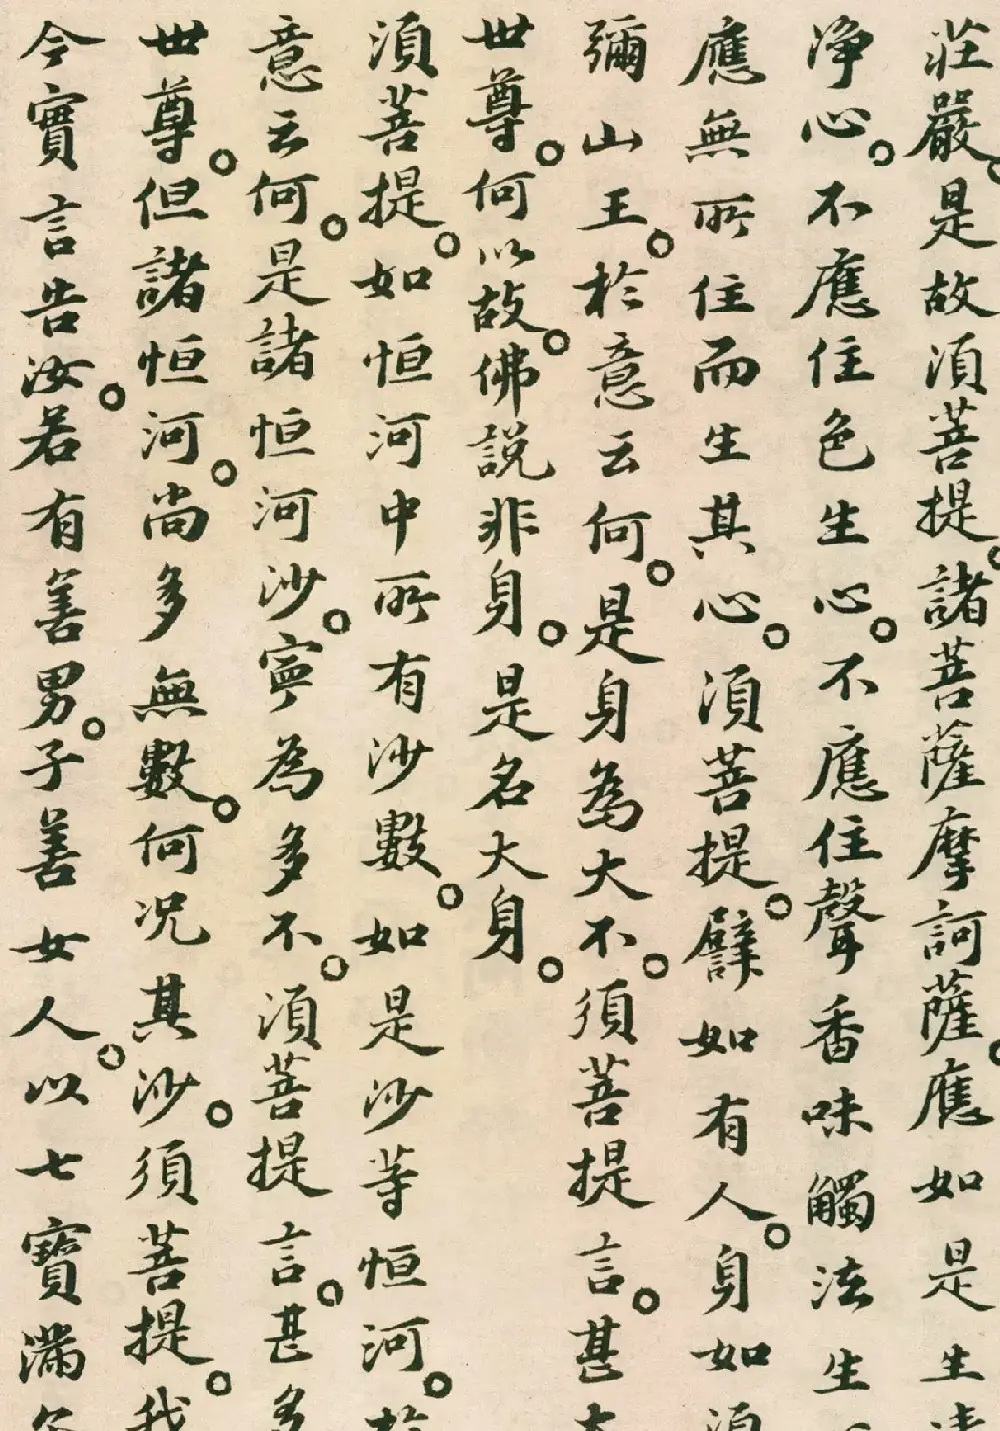 莊嚴。是故須菩提。諸菩薩摩訶薩。應如是生清
淨心。不應住色生心。不應住聲香味觸法生
應無所住而生其心。須菩提。譬如有人。身如須
彌山王。於意云何。是身為大不。須菩提言。甚大
世尊。何以故。佛說非身。是名大身。
須菩提。如恒河中所有沙數。如是沙等恒河。於
意云何。是諸恒河沙。寧為多不。須菩提言。甚多
世尊。但諸恒河。尚多無數。何況其沙。須菩提。我
今實言告汝。若有善男。子善女人。以七寶滿